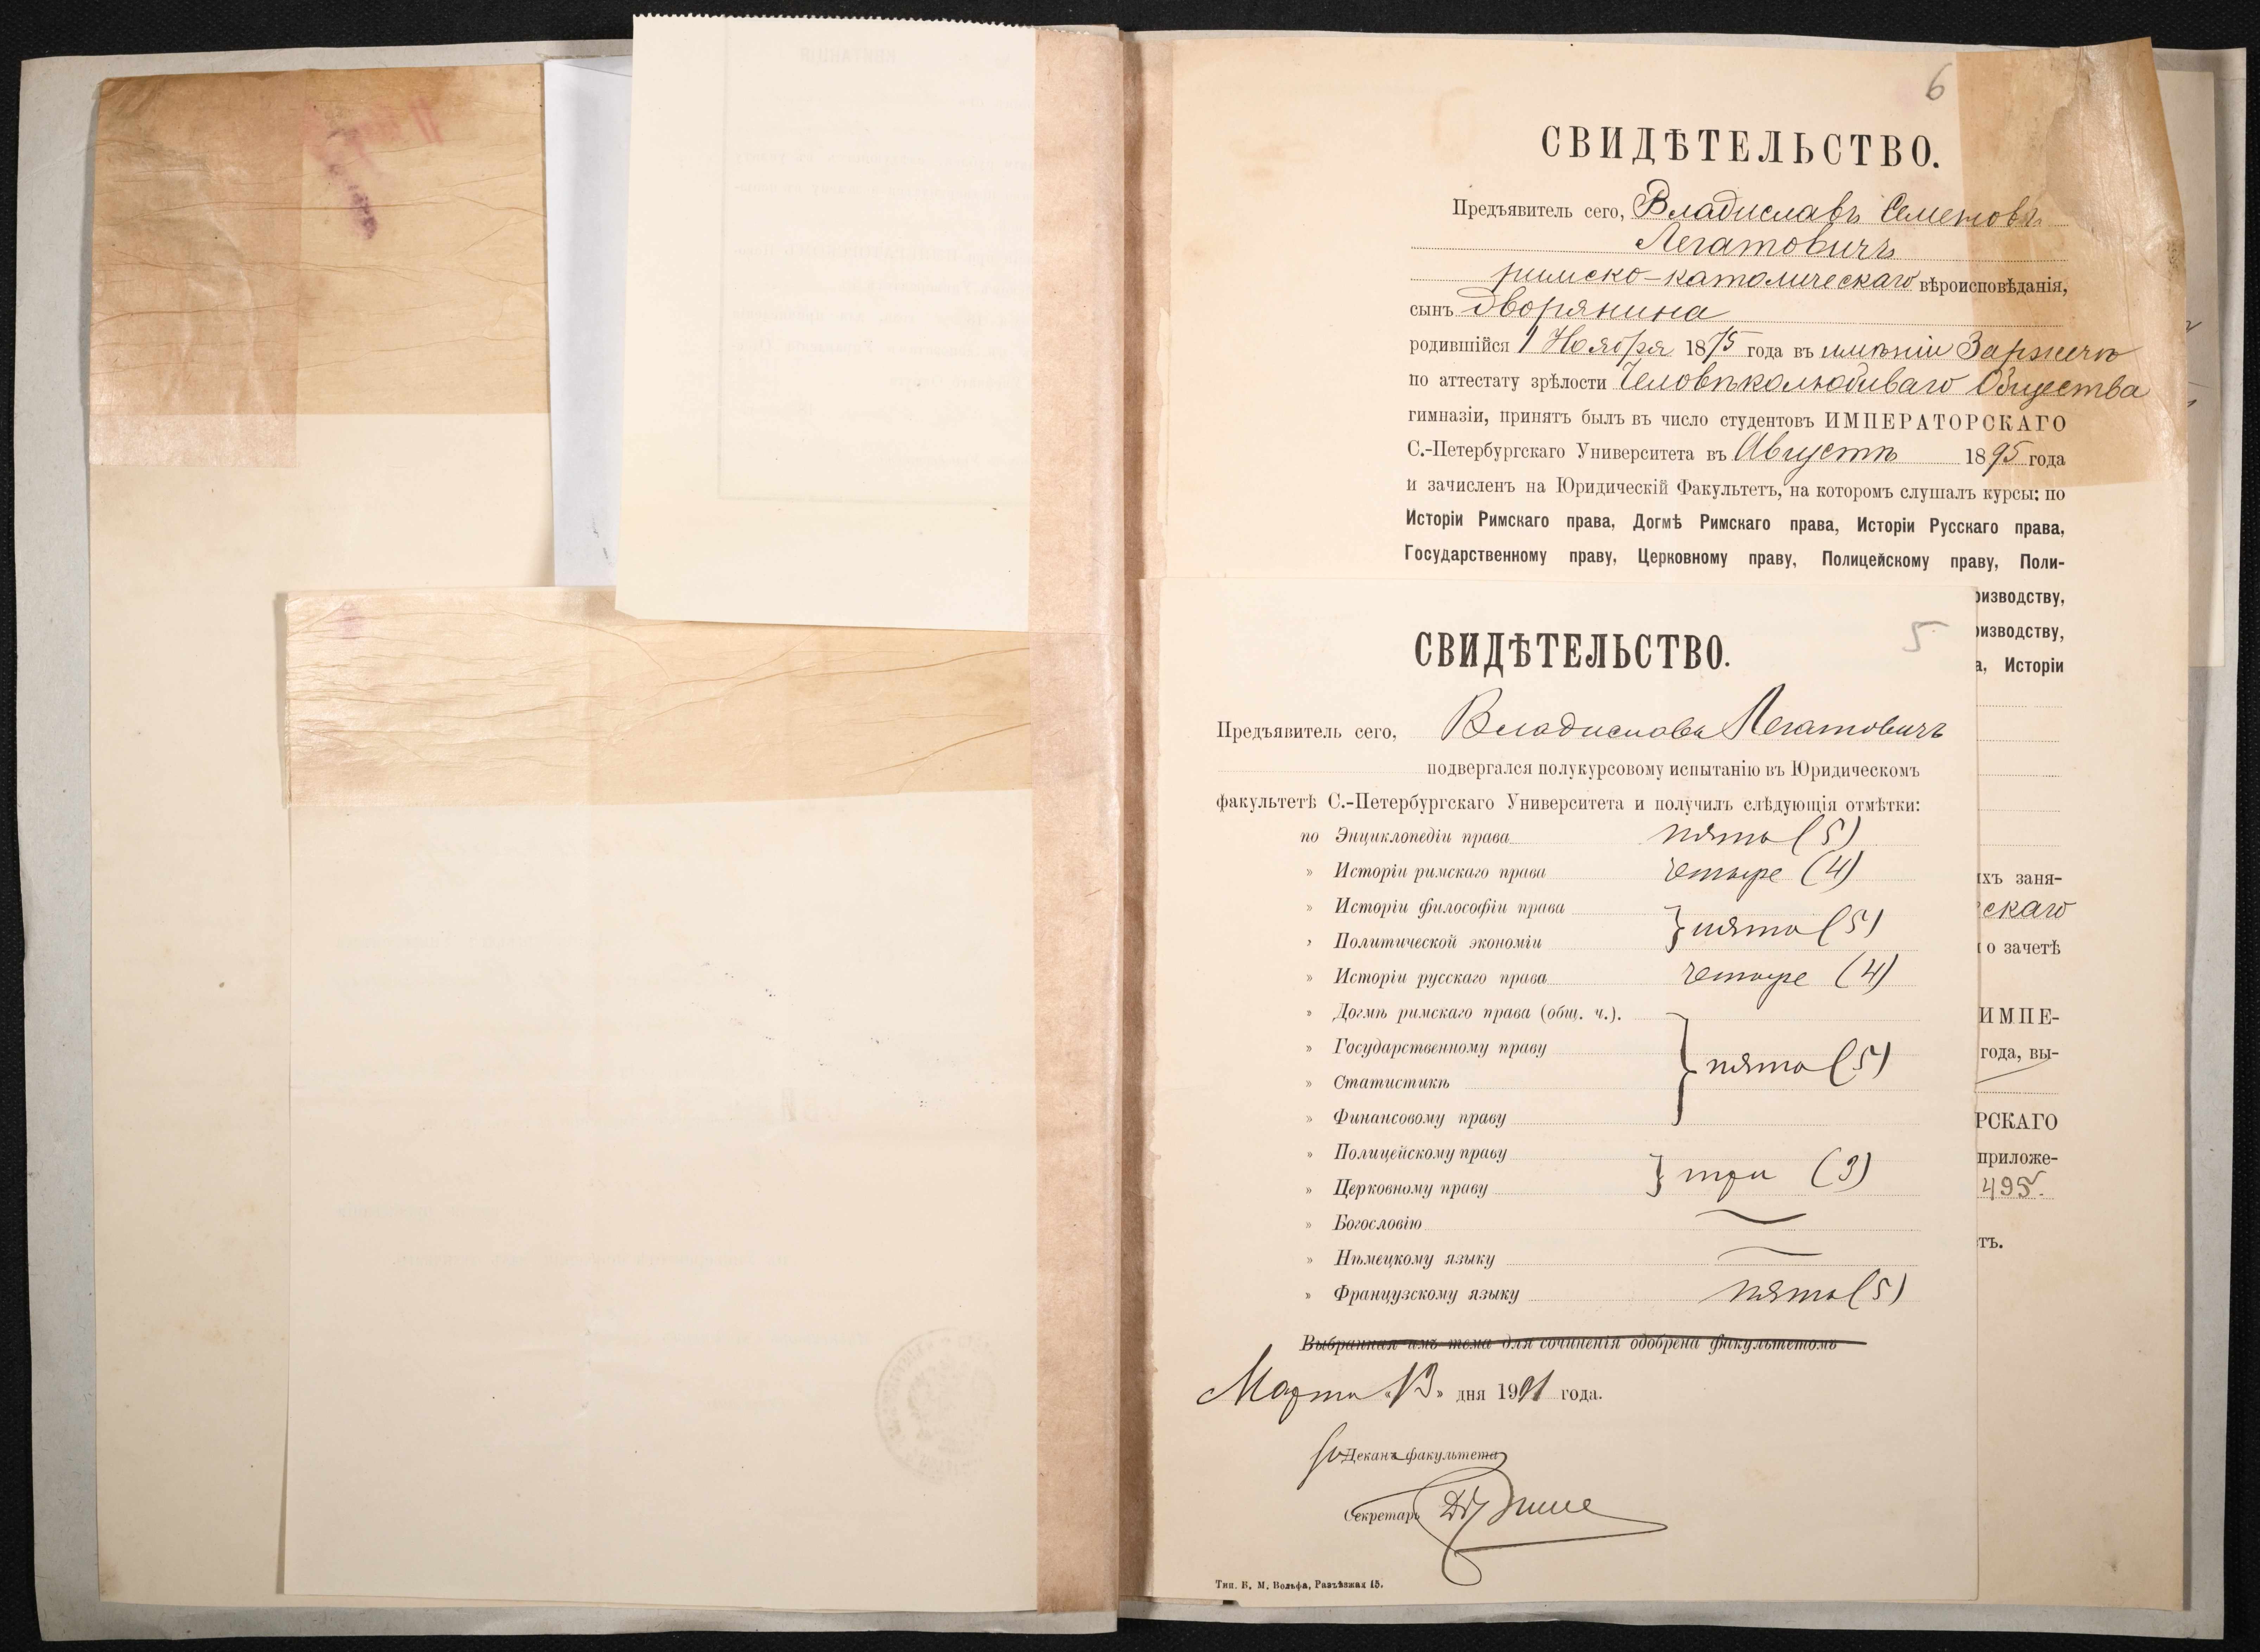 6
СВИДѢТЕЛЬСТВО.
Предъявитель сего, Владиславъ Семеновъ
Легатовичъ
римско-католическаго вѣроисповѣданія,
сынъ дворянина
родившійся 1 Ноября 1875 года въ имѣніи Заржечѣ
по аттестату зрѣлости Человѣколюбиваго Общества
гимназіи, принятъ былъ въ число студентовъ ИМПЕРАТОРСКАГО
С.-Петербургскаго Университета въ Августѣ 1895 года
и зачисленъ на Юридическій Факультетъ, на которомъ слушалъ курсы: по
Исторіи Римскаго права, Догмѣ Римскаго права, Исторіи Русскаго права,
Государственному праву, Церковному праву, Полицейскому праву, Поли-
оизводству,
оизводству,
а, Исторіи
ихъ заня-
скаго
о зачетѣ
ИМПЕ-
года, вы-
РСКАГО
приложе-
495.
тъ.
5
СВИДѢТЕЛЬСТВО.
Предъявитель сего, Владиславъ Легатовичъ
подвергался полукурсовому испытанію въ Юридическомъ
факультетѣ С.-Петербургскаго Университета и получилъ слѣдующія отмѣтки:
по Энциклопедіи права пять (5)
» Исторіи римскаго права четыре (4)
» Исторіи философіи права
» Политической экономіи } пять (5)
» Исторіи русскаго права четыре (4)
» Догмѣ римскаго права (общ. ч.).
» Государственному праву
» Статистикѣ } пять (5)
» Финансовому праву
» Полицейскому праву
» Церковному праву } три (3)
» Богословію —
» Нѣмецкому языку —
» Французскому языку пять (5)
Выбранная имъ тема для сочиненія одобрена факультетомъ
Марта «13» дня 1901 года.
Деканъ факультета
Секретарь
Тип. В. М. Вольфа, Разъѣзжая 15.